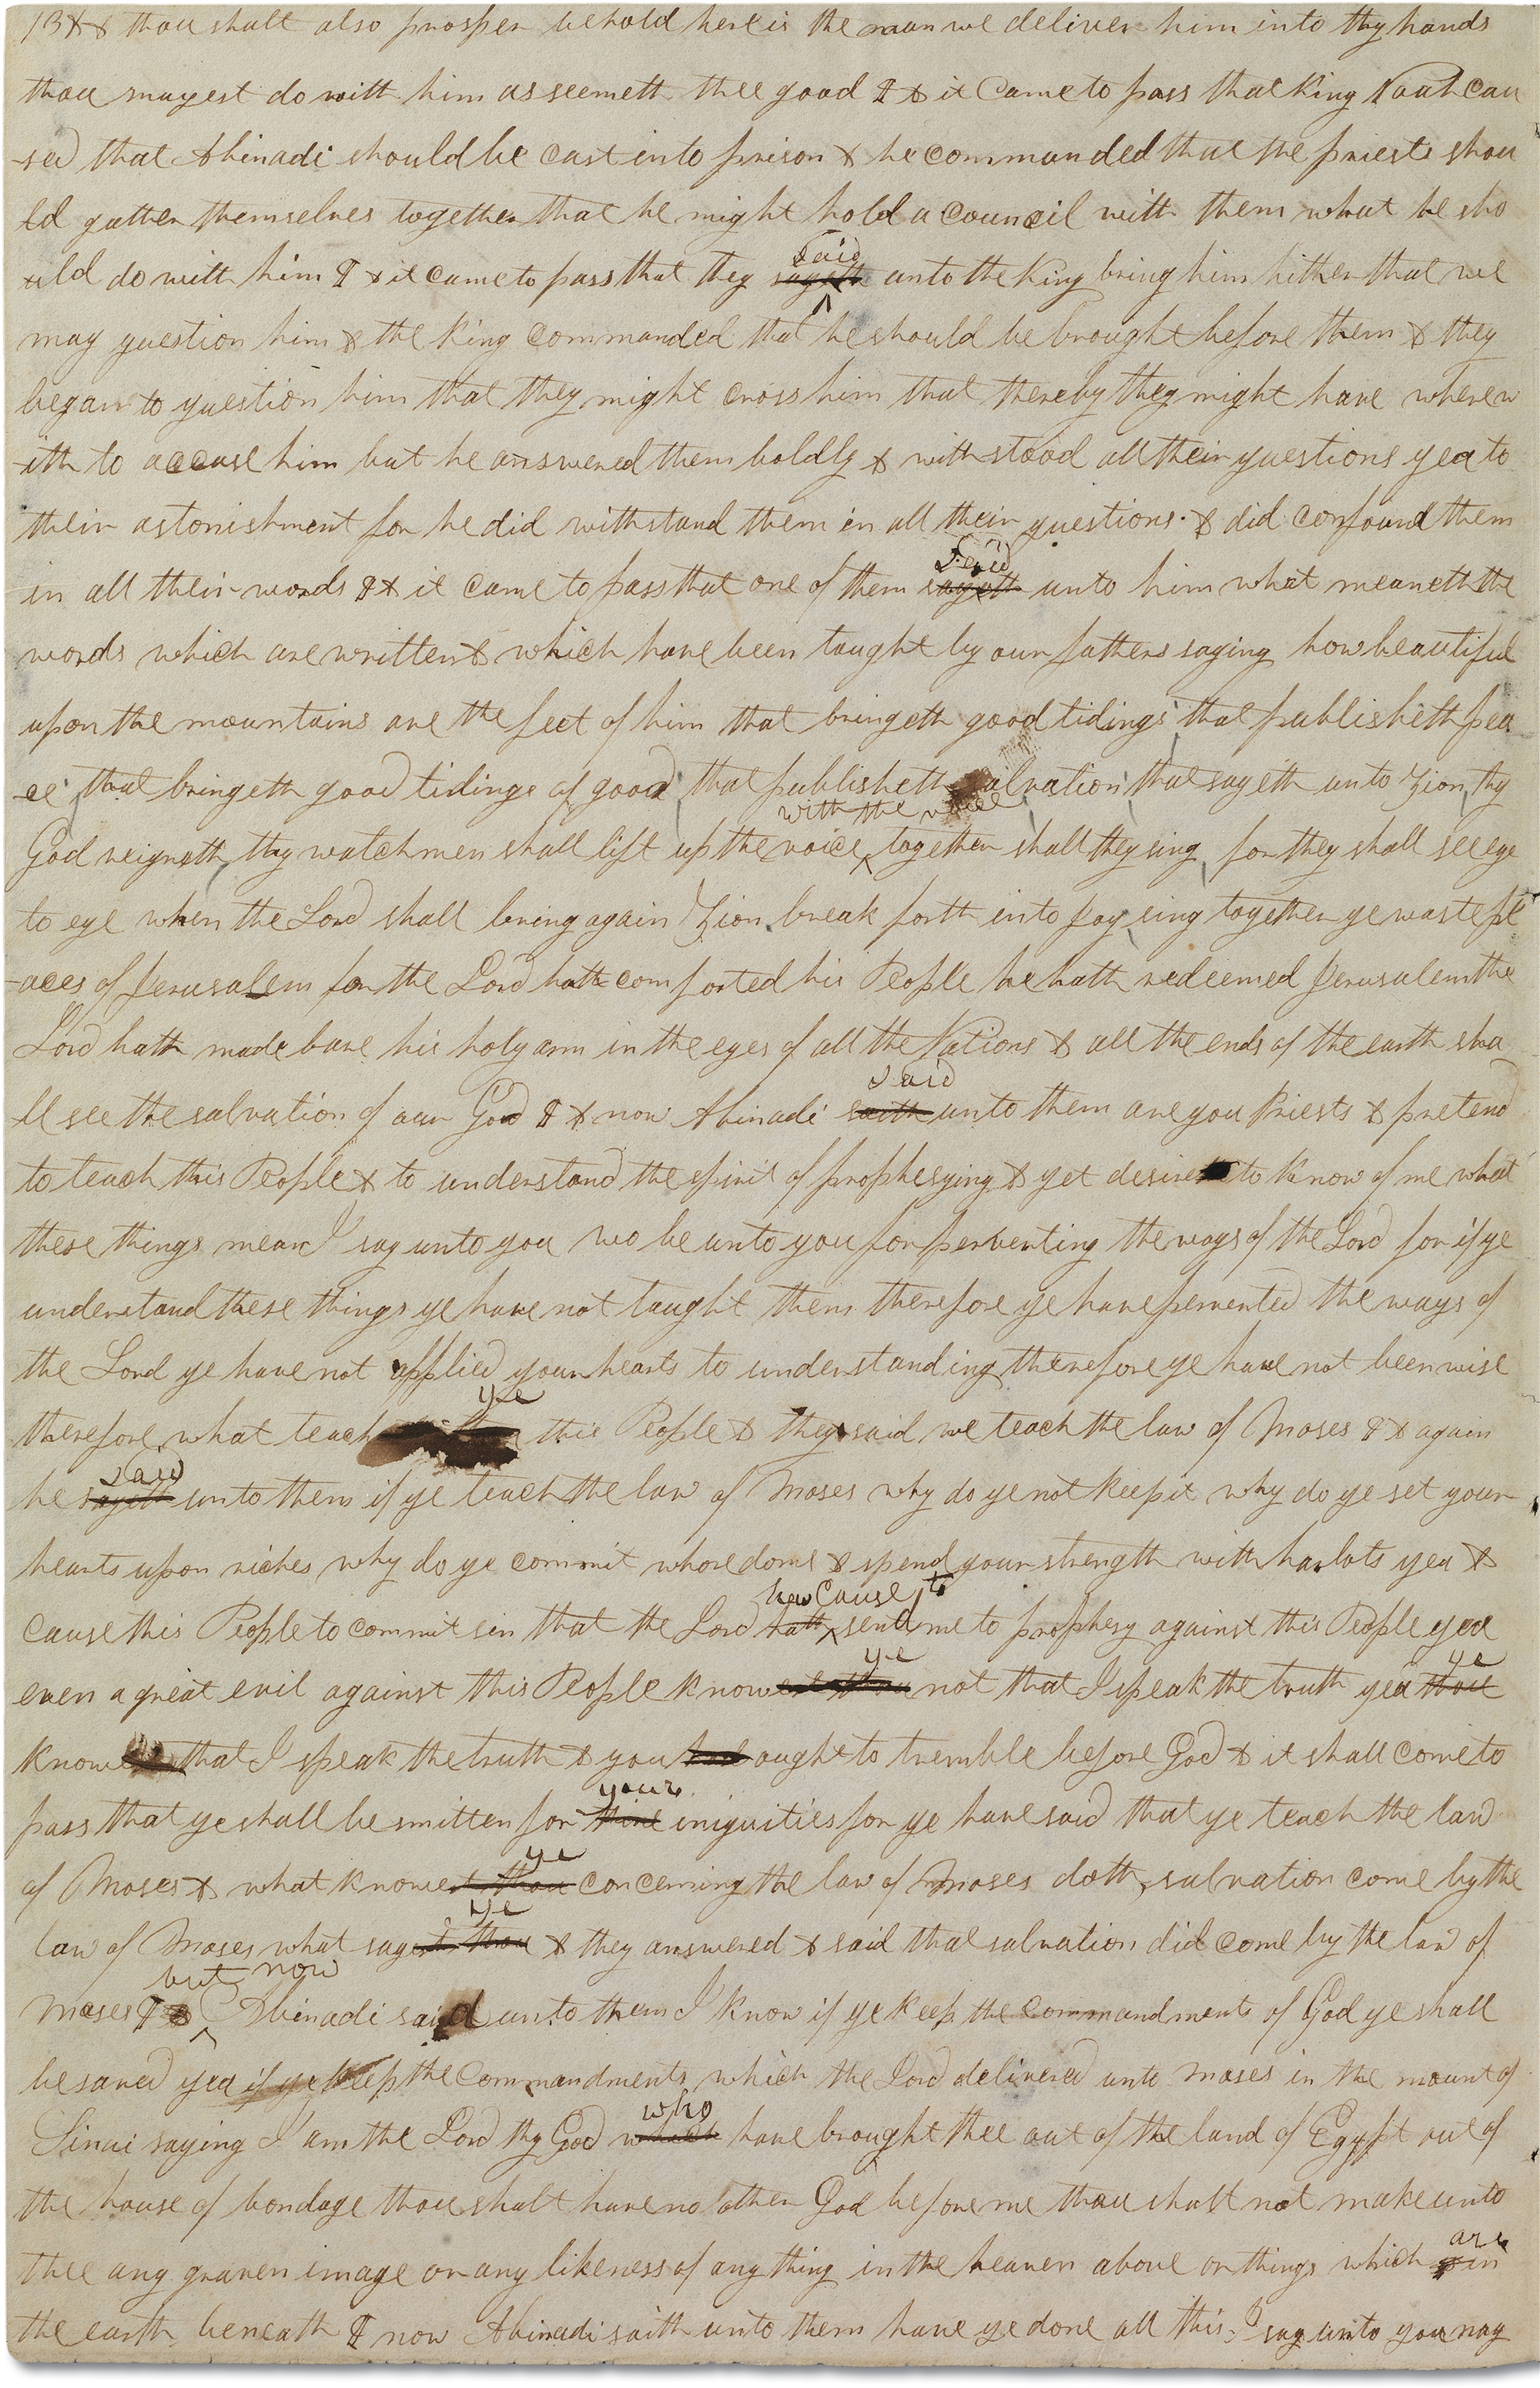 & thou shalt also prosper behold here is the man we deliver him into thy hands
thou mayest do with him as seemeth thee good & it came to pass that King Noah cau
-sed that Abinadi should be cast into prison & he commanded that the priests shou
ld gather themselves together that he might hold a council with them what he sho
uld do with him & it came to pass that they
said
sayeth unto the King bring him hither that we
may question him & the King commanded that he should be brought before them & they
began to question him that they might cross him that thereby they might have wherew
-ith to accuse him but he answered them boldly & withstood all their questions yea to
their astonishment for he did withstand them in all their questions & did confound them
said
in all their words & it came to pass that one of them sayeth unto him what meaneth the
words which are written & which have been taught by our fathers saying how beautiful
upon the mountains are the feet of him that bringeth good tidings that publisheth pea
-ce, that bringeth good tidings of good, that publisheth salvation, that sayeth unto Zion, thy
with the voice
God reigneth, thy watchmen shall lift up the voice ^ together shall they sing for they shall see eye
to eye when the Lord shall bring again Zion, break forth into joy, sing together ye waste pl
-aces of Jerusalem for the Lord hath comforted his People he hath redeemed Jerusalem the
Lord hath made bare his holy arm in the eyes of all the Nations & all the ends of the earth sha
said
-ll see the salvation of our God & now Abinadi saith unto them are you Priests & pretend
to teach this People & to understand the spirit of prophesying & yet desire to know of me what
these things mean I say unto you wo be unto you for perverting the ways of the Lord for if ye
understand these things ye have not taught them therefore ye have perverted the ways of
the Lord ye have not applied your hearts to understanding therefore ye have not been wise
ye
therefore what teach this People & they said we teach the law of Moses & again
said
he sayeth unto them if ye teach the law of Moses why do ye not keep it why do ye set your
hearts upon riches why do ye commit whoredoms & spend your strength with harlots yea &
has cause to
cause this People to commit sin that the Lord hath ^ send me to prophesy against this People yea
ye ye
even a great evil against this People knowest thou not that I speak the truth yea thou
know that I speak the truth & you ought to tremble before God & it shall come to
your
pass that ye shall be smitten for thine iniquities for ye have said that ye teach the law
ye
of Moses & what knowest thou concerning the law of Moses doth salvation come by the
ye
law of Moses what sayest thou & they answered & said that salvation did come by the law of
but now
Moses & ^ Abinadi said unto them I know if ye keep the commandments of God ye shall
be saved yea if ye keep the commandments which the Lord delivered unto Moses in the mount of
who
Sinai saying I am the Lord thy God which have brought thee out of the land of Egypt out of
the house of bondage thou shalt have no other God before me thou shalt not make unto
are
thee any graven image or any likeness of any thing in the heaven above or things which in
the earth beneath & now Abinadi saith unto them have ye done all this, I say unto you nay